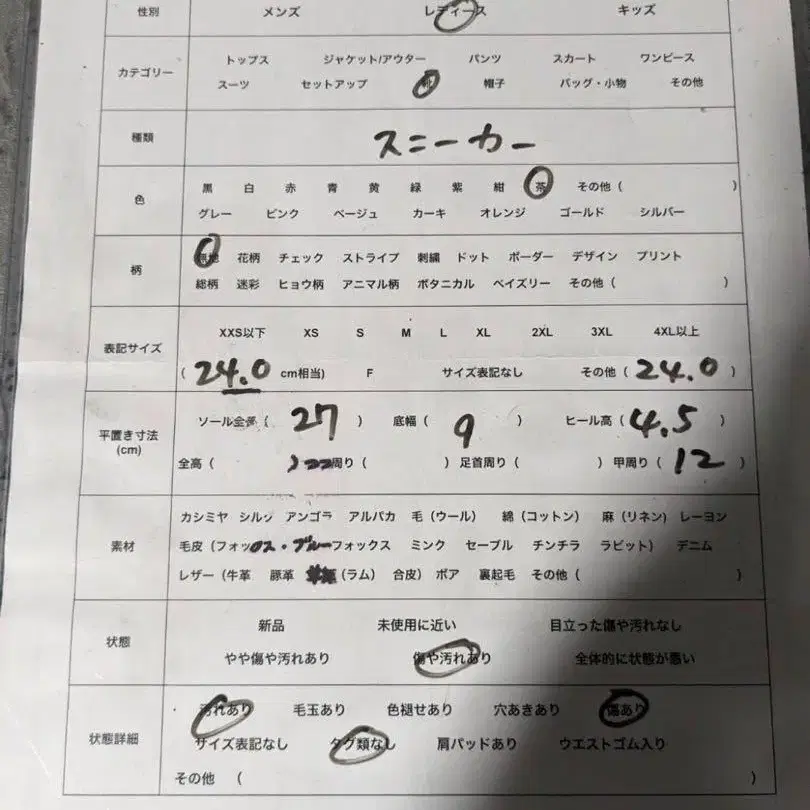 性別 メンズ レディース キッズ
カテゴリー
トップス ジャケット/アウター パンツ スカート ワンピース
スーツ セットアップ 靴 帽子 バッグ・小物 その他
種類 スニーカー
色
黒 白 赤 青 黄 緑 紫 紺 茶 その他 ( )
グレー ピンク ベージュ カーキ オレンジ ゴールド シルバー
柄
無地 花柄 チェック ストライプ 刺繍 ドット ボーダー デザイン プリント
総柄 迷彩 ヒョウ柄 アニマル柄 ボタニカル ペイズリー その他 ( )
表記サイズ
XXS以下 XS S M L XL 2XL 3XL 4XL以上
( 24.0 cm相当) F サイズ表記なし その他 ( 24.0 )
平置き寸法
(cm)
ソール全長 ( 27 ) 底幅 ( 9 ) ヒール高 ( 4.5 )
全高 ( 周り ( ) 足首周り ( ) 甲周り ( 12 )
素材
カシミヤ シルク アンゴラ アルパカ 毛 (ウール) 綿 (コットン) 麻 (リネン) レーヨン
毛皮 (フォックス・ブルーフォックス ミンク セーブル チンチラ ラビット) デニム
レザー (牛革 豚革 (ラム) 合皮) ボア 裏起毛 その他 ( )
状態
新品 未使用に近い 目立った傷や汚れなし
やや傷や汚れあり 傷や汚れあり 全体的に状態が悪い
状態詳細
汚れあり 毛玉あり 色褪せあり 穴あきあり 傷あり
サイズ表記なし タグ類なし 肩パッドあり ウエストゴム入り
その他 ( )